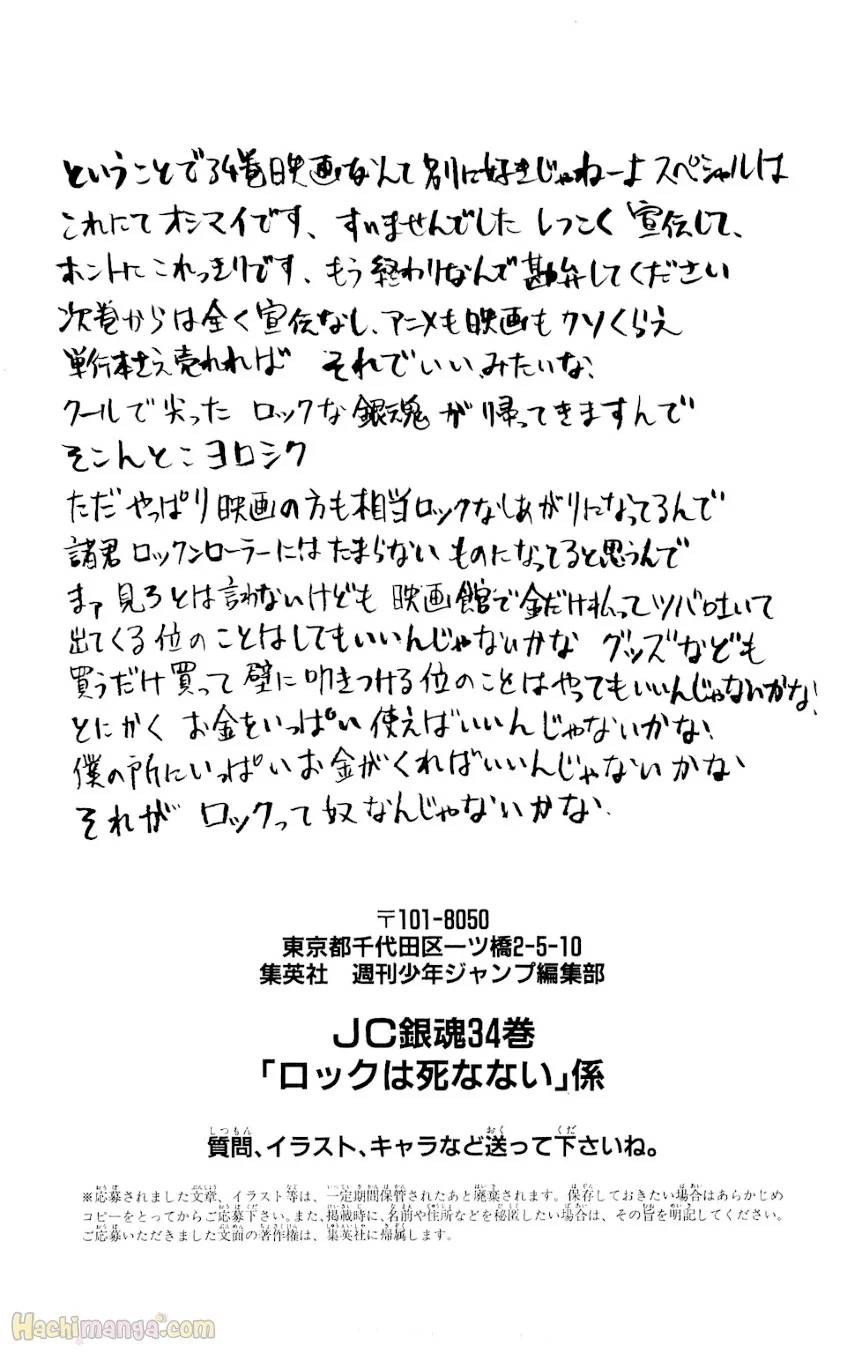 ということで34巻映画なんて別に好きじゃねーよスペシャルは
これにてオシマイです、すいませんでした しつこく宣伝して、
ホントにこれっきりです、もう終わりなんで勘弁してください
次巻からは全く宣伝なし、アニメも映画もクソくらえ
単行本さえ売れれば それでいい、みたいな、
クールで尖った ロックな銀魂が帰ってきますんで
そこんとこヨロシク
ただやっぱり映画の方も相当ロックなしあがりになってるんで
諸君ロックンローラーにはたまらないものになってると思うんで
まァ見ろとは言わないけども 映画館で金だけ払ってツバ吐いて
出てくる位のことはしてもいいんじゃないかな グッズなども
買うだけ買って壁に叩きつける位のことはやってもいいんじゃないかな、
とにかく お金をいっぱい使えばいいんじゃないかな、
僕の所にいっぱいお金がくればいいんじゃないかな
それが ロックって奴なんじゃないかな.
〒101-8050
東京都千代田区一ツ橋2-5-10
集英社 週刊少年ジャンプ編集部
JC銀魂34巻
「ロックは死なない」係
質問、イラスト、キャラなど送って下さいね。
※応募されました文章、イラスト等は、一定期間保管されたあと廃棄されます。保存しておきたい場合はあらかじめ
コピーをとってからご応募下さい。また、掲載時に、名前や住所などを秘匿したい場合は、その旨を明記してください。
ご応募いただきました文面の著作権は、集英社に帰属します。
Hachimanga.com!